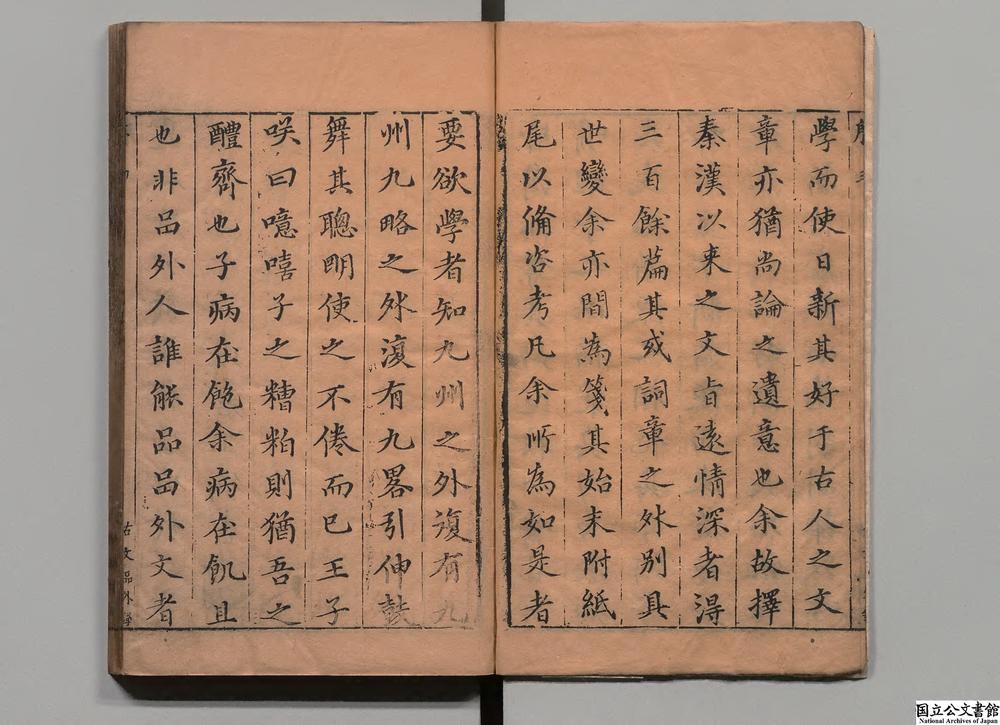 學而使日新其好于古人之文
章亦猶尚論之遺意也余故擇
秦漢以来之文旨遠情深者淂
三百餘篇其或詞章之外别具
世變余亦間為箋其始末附紙
尾以俻咨考凡余所為如是者
要欲學者知九州之外復有九
州九略之外復有九畧引伸鼓
舞其聰明使之不倦而已王子
咲曰噫嘻子之糟粕則猶吾之
醴齊也子病在飽余病在飢且
也非品外人誰能品品外文者
古文品外
国立公文書館
National Archives of Japan